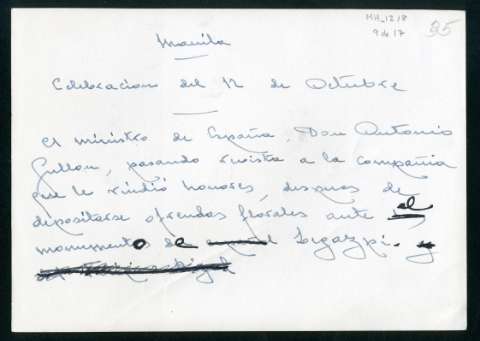 MH_1218
9 de 17
35
Manila
Celebracion del 12 de Octubre
el ministro de España, Don Antonio
Gullon, pasando revista a la compañia
que le rindió honores, despues de
depositarse ofrendas florales ante el
monumento de Legazpi.